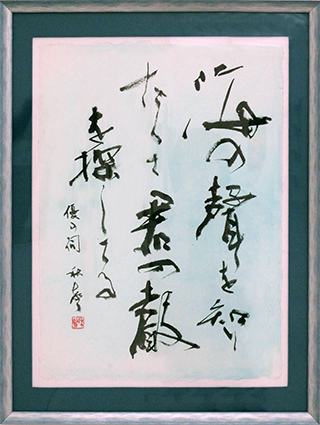 海の聲を知り
たくて君の聲
を探してる
優の詞